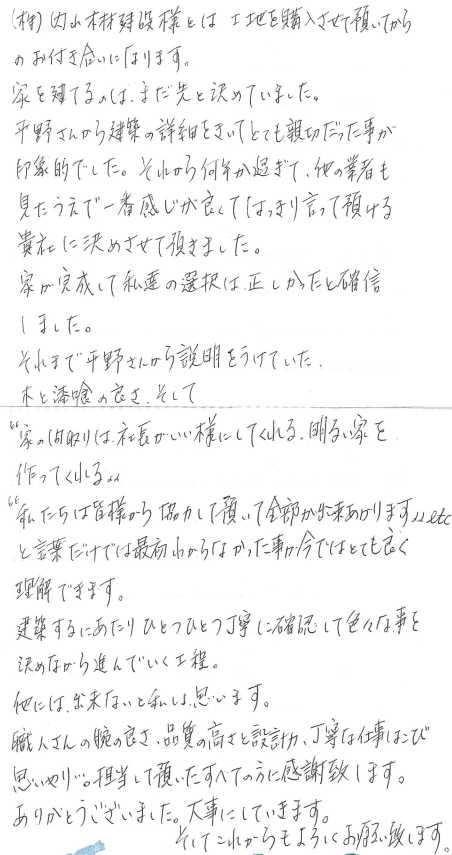 (株)内山木材建設様とは土地を購入させて頂いてから
のお付き合いになります。
家を建てるのは、まだ先と決めていました。
平野さんから建築の詳細をきいてとても親切だった事が
印象的でした。それから何年か過ぎて、他の業者も
見たうえで一番感じが良くてはっきり言って頂ける
貴社に決めさせて頂きました。
家が完成して私達の選択は、正しかったと確信
しました。
それまで平野さんから説明をうけていた、
木と漆喰の良さ、そして
“家の間取りは、社長がいい様にしてくれる、明るい家を
作ってくれる〟
“私たちは皆様から協力して頂いて全部が出来あがります〟etc
と言葉だけでは最初わからなかった事が今ではとても良く
理解できます。
建築するにあたりひとつひとつ丁寧に確認して色々な事を
決めながら進んでいく工程。
他には、出来ないと私は、思います。
職人さんの腕の良さ、品質の高さと設計力、丁寧な仕事はこび
思いやり…。担当して頂いたすべての方に感謝致します。
ありがとうございました。大事にしていきます。
そしてこれからもよろしくお願い致します。